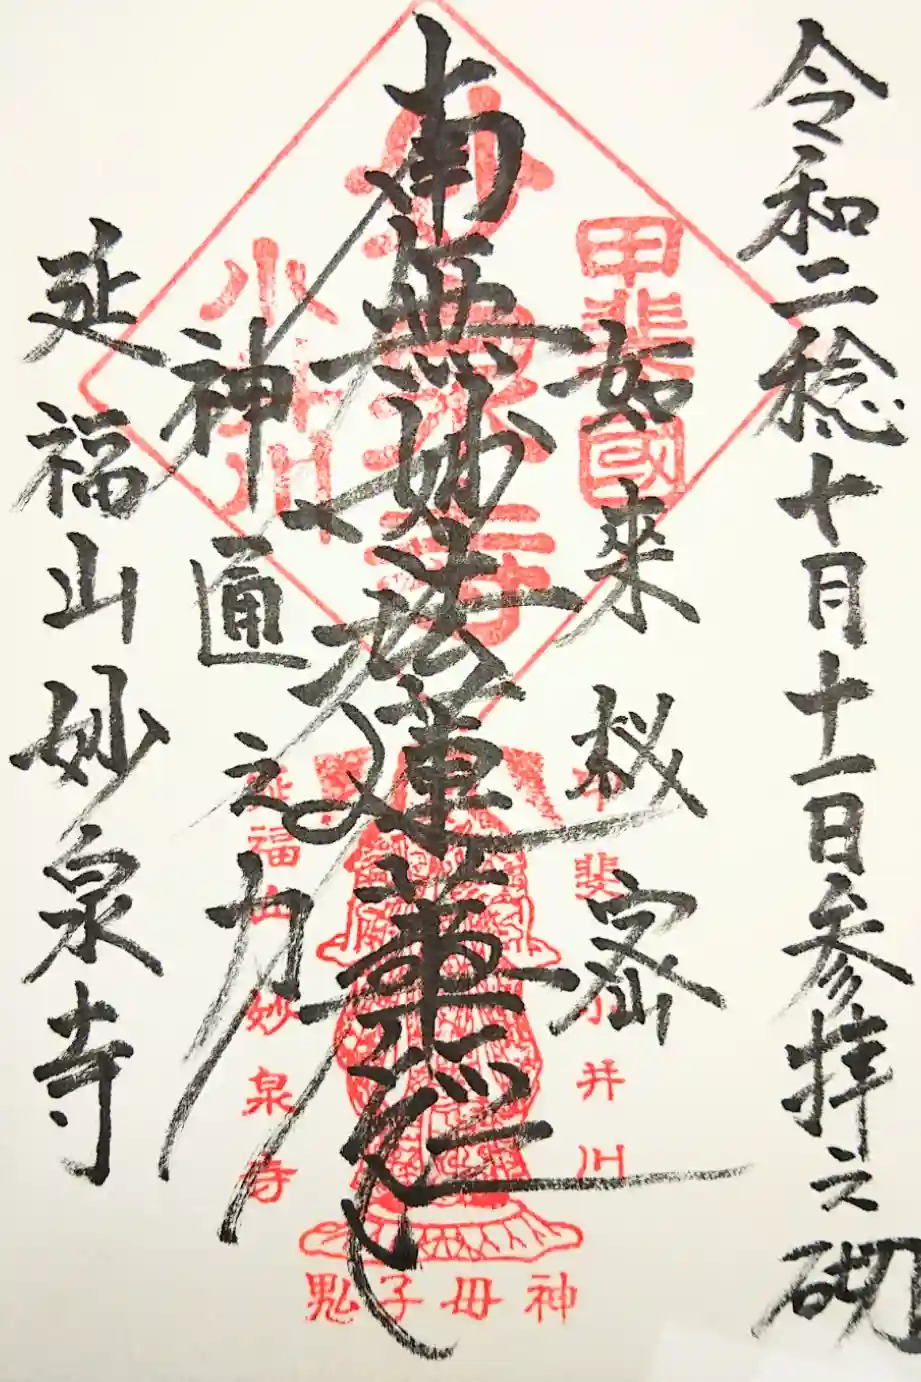 令和二稔十月十一日参拝之砌
如来秘密
南無妙法蓮華経
神通之力
延福山妙泉寺
甲斐國
妙泉寺
小井川
甲斐小井川
延福山妙泉寺
鬼子母神